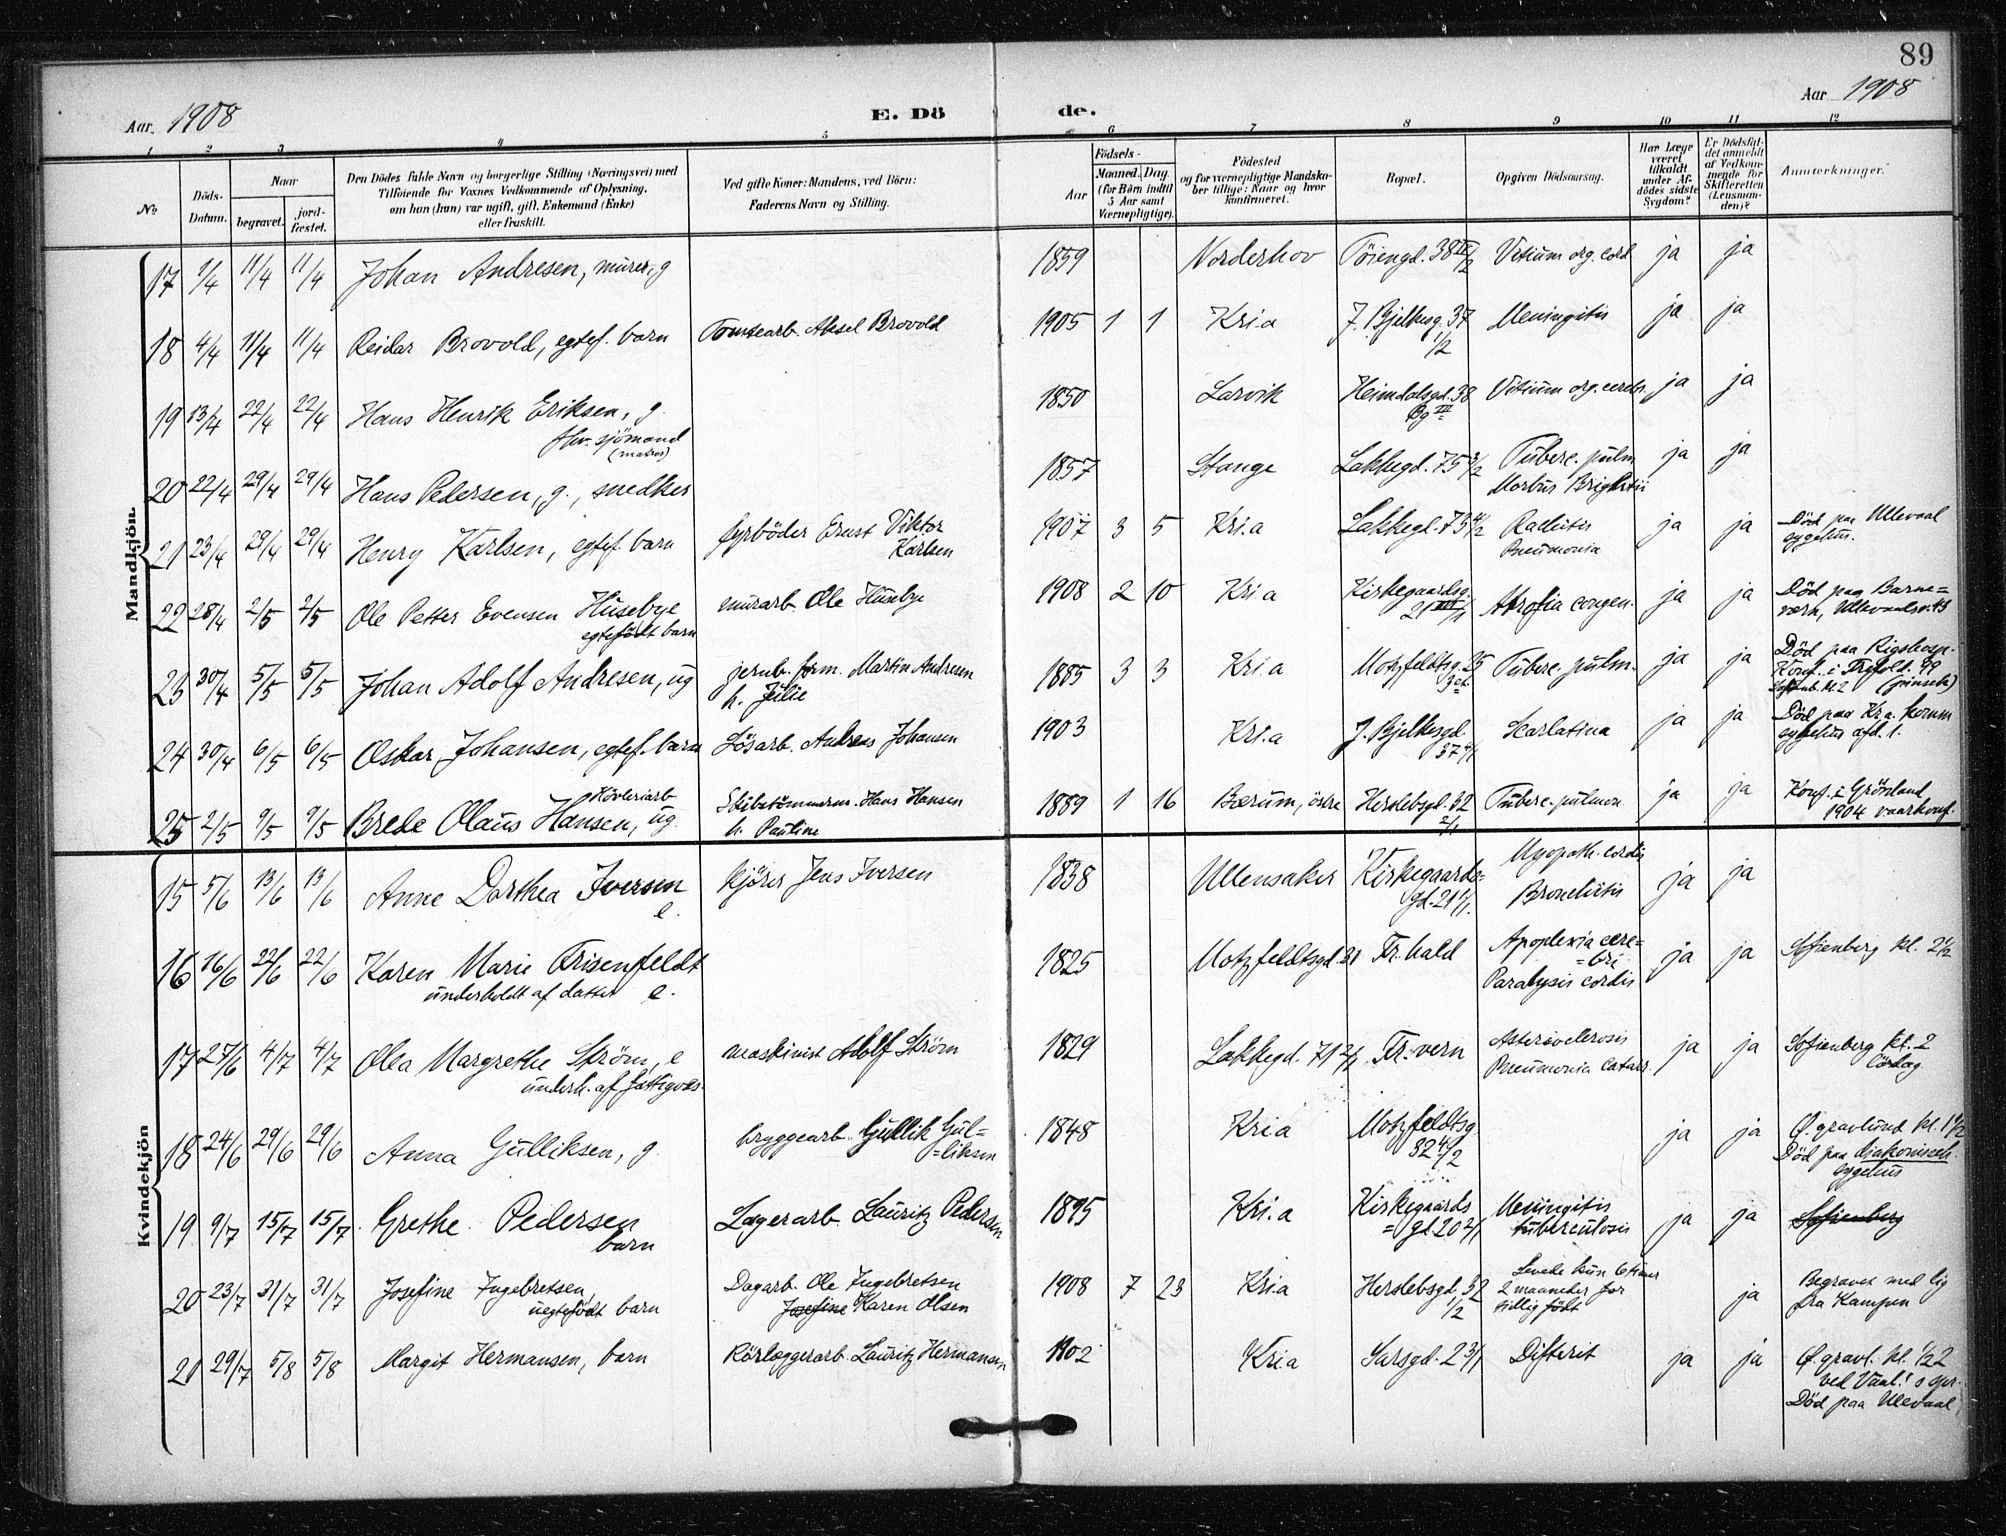 89
Aar 1908 E. Dö de. Aar 1908
1 2 3 4 5 6 7 8 9 10 11 12
No
Döds-Datum.
Naar
begravet.
jord-fæstet.
Den Dödes fulde Navn og borgerlige Stilling (Næringsvei) med
Tilföiende for Voxnes Vedkommende af Oplysning,
om han (hun) var ugift, gift, Enkemand (Enke)
eller fraskilt.
Ved gifte Koner: Mandens, ved Börn:
Faderens Navn og Stilling.
Födsels-
Aar
Maaned. Dag.
(for Börn indtil
5 Aar samt
Værnepligtige).
Födested
og for værnepligtige Mandska-
ber tillige: Naar og hvor
konfirmeret.
Bopæl.
Opgiven Dödsaarsag.
Har Læge
været
tilkaldt
under Af-
dödes sidste
Sygdom?
Er Dödsfal-
det anmeldt
af Vedkom-
mende for
Skifteretten
(Lensman-
den)?
Anmærkninger.
Mandkjön.
17 1/4 11/4 11/4 Johan Andresen, murer, g 1859 Norderhov Töiengd. 38 Vitium org. cord ja ja
18 4/4 11/4 11/4 Reidar Brovold, egtef. barn Tomtearb. Aksel Brovold 1905 1 1 Kri.a J. Bjelkesg. 37 1/2 Meningitis ja ja
19 13/4 22/4 22/4 Hans Henrik Eriksen, g. 1850 Larvik Heimdalsgd. 38 Vitium org. cerebr. ja ja
fhv. sjömand
(matros)
Bg III
20 22/4 29/4 29/4 Hans Pedersen, g., snedker 1857 Stange Lakkegd. 75 3/2 Taberc. pulm ja ja
Morbus Brightii
21 23/4 29/4 29/4 Henry Karlsen, egtef. barn fyrböder Ernst Viktor Karlsen 1907 3 5 Kri.a Lakkegd. 73 4/2 Rachitis ja ja Död paa Ullevaal
Pneumonia sygehus.
22 28/4 2/5 2/5 Ole Petter Evensen Husebye murarb. Ole Husebye 1908 2 10 Kri a Kirkegaardsg. Atrofia congen. ja ja Död paa Barne=
egtefödt barn værn, Ullevaalsv. 43
23 30/4 5/5 5/5 Johan Adolf Andresen, ug jernb. form. Martin Andresen 1885 3 3 Kri.a Motzfeldtsg. 25 Tuberc. pulm. ja ja Död paa Rigshosp.
h. Julie
24 30/4 6/5 6/5 Oskar Johansen, egtef. barn Lösarb. Andreas Johansen 1903 Kri.a J. Bjelkesgd. 37 4/1 Scarlatina ja ja Död paa Kr.a. komm
sygehus afd. 1.
25 2/5 9/5 9/5 Brede Olaus Hansen, ug. Hövleriarb Skibstömmerm. Hans Hansen 1889 1 16 Bærum, östre Herslebsgd. 32 2/1 Tuberc. pulmon ja ja Konf. i Grönland
h. Pauline 1904 vaarkonf.
Kvindekjön
15 5/6 13/6 13/6 Anne Dorthea Iversen e. kjörer Jens Iversen 1838 Ullensaker Kirkegaards= gd. 21 1/1. Myopath. cordis ja ja
Bronchitis
16 16/6 22/6 22/6 Karen Marie Frisenfeldt 1825 Motzfeldtsgd. 31 Fr.hald Apoplexia cere= ja ja Sofienberg kl. 2 1/2
underholdt af datter e. =bri
Paralysis cordis
17 27/6 4/7 4/7 Olea Margrethe Ström, e maskinist Adolf Ström 1829 Lakkegd. 71 2/1 Fr.vern Asteriosclerosis ja ja Sofienberg kl. 2
underh. af fattigvæs. Pneumonia catarr. Lördag
18 24/6 29/6 29/6 Anna Gulliksen, g. bryggearb. Gullik Gul=liksen 1848 Kri a Motzfeldtsg. 32 4/2 ja ja Ø. gravlund kl. 1 1/2
Död paa diakonisseh.
sygehus
19 9/7 15/7 15/7 Grethe Pedersen barn Lagerarb. Lauritz Pedersen 1895 Kri.a Kirkegaards =gd 20 2/1 Meningitis ja ja Sofienberg
tuberculosis
20 23/7 31/7 31/7 Josefine Ingebretsen, uegtefödt barn Dagarb. Ole Ingebretsen 1908 7 23 Kri.a Herslebsgd. 32 1/2 Levede kun 6 timer ja Begravet med lig
Josefine Karen Olsen 2 maaneder for fra Kampen
tidlig födt
21 29/7 5/8 5/8 Margit Hermansen, barn Rörlæggerarb. Lauritz Hermansen 1902 Kria Sarsgd. 2 3/1 Difterit ja ja Ø. gravl. kl. 1/2 2
Död paa Ullevaal